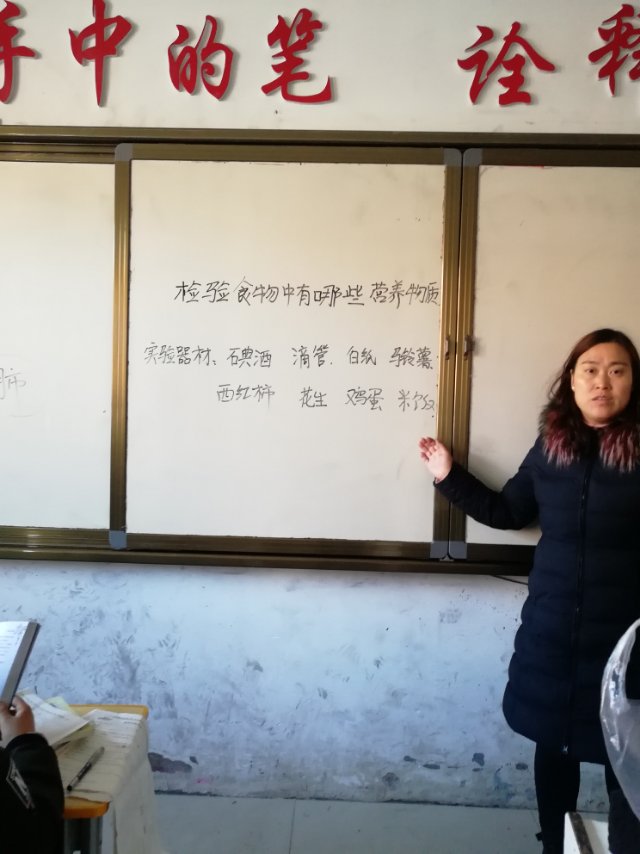 手中的笔 诠释
肺
检验食物中有哪些营养物质
实验器材、碘酒 滴管、白纸 马铃薯、
西红柿 花生 鸡蛋 米饭